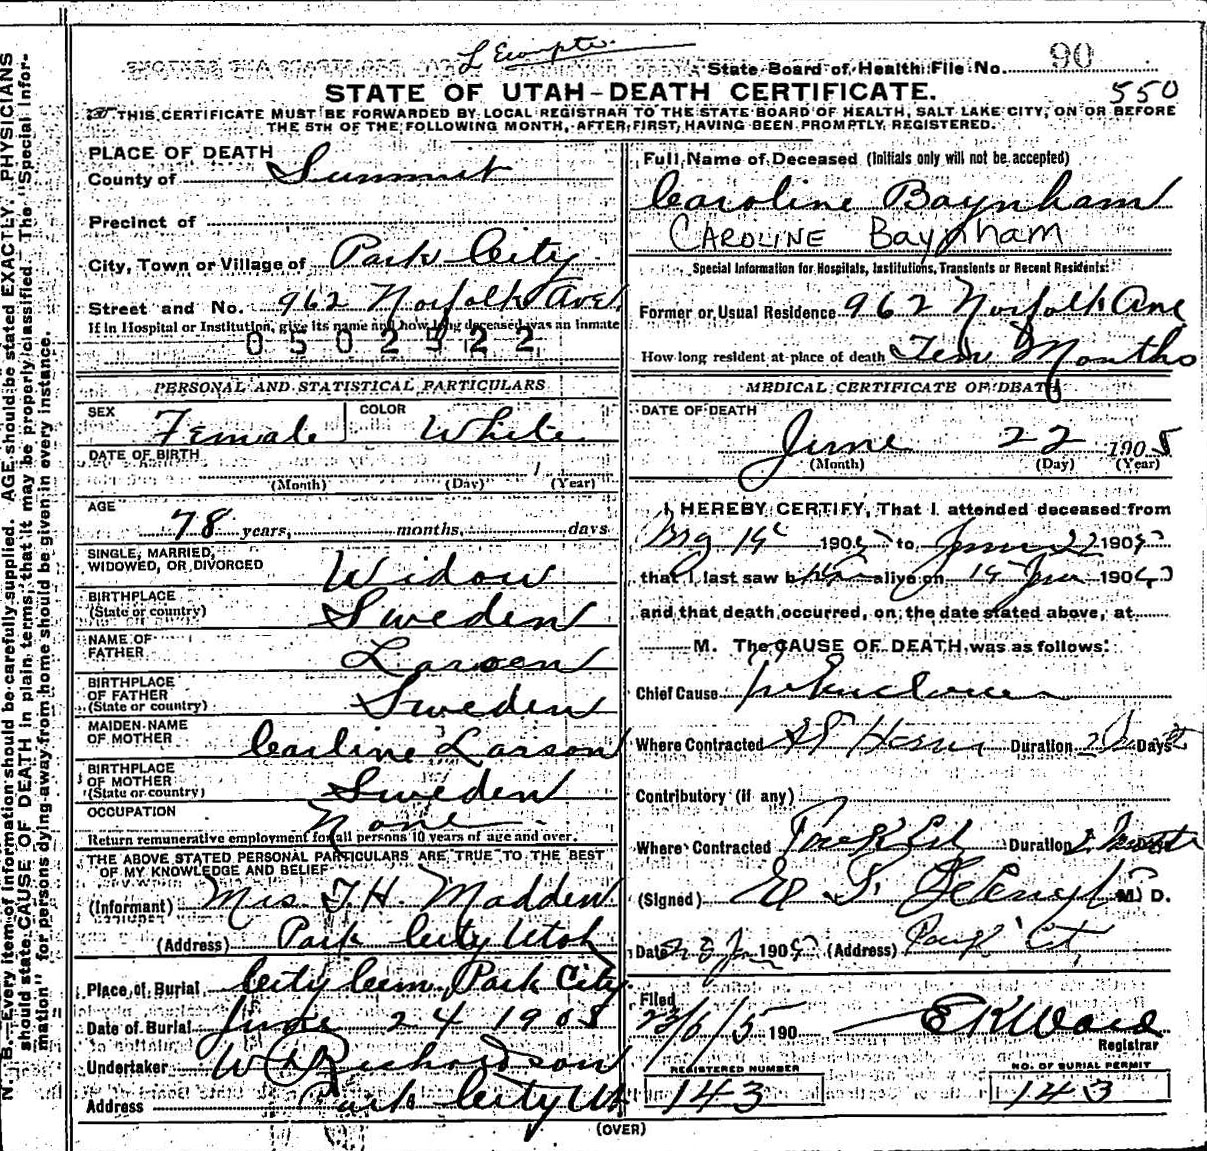 L Exempts.
State Board of Health File No. 90
STATE OF UTAH-DEATH CERTIFICATE. 550
THIS CERTIFICATE MUST BE FORWARDED BY LOCAL REGISTRAR TO THE STATE BOARD OF HEALTH, SALT LAKE CITY, ON OR BEFORE
THE 5TH OF THE FOLLOWING MONTH, AFTER FIRST HAVING BEEN PROMPTLY REGISTERED.
PLACE OF DEATH
County of Summit
Precinct of
City, Town or Village of Park City
Street and No. 962 Norfolk Ave.
If in Hospital or Institution, give its name and how long deceased was an inmate
0502522
PERSONAL AND STATISTICAL PARTICULARS
SEX Female COLOR White
DATE OF BIRTH
(Month) (Day) (Year)
AGE 78 years, months, days
SINGLE, MARRIED,
WIDOWED, OR DIVORCED Widow
BIRTHPLACE
(State or country) Sweden
NAME OF
FATHER Larson
BIRTHPLACE
OF FATHER
(State or country) Sweden
MAIDEN NAME
OF MOTHER Carline Larson
BIRTHPLACE
OF MOTHER
(State or country) Sweden
OCCUPATION None
Return remunerative employment for all persons 10 years of age and over.
THE ABOVE STATED PERSONAL PARTICULARS ARE TRUE TO THE BEST
OF MY KNOWLEDGE AND BELIEF
(Informant) Mrs T. H. Madden
(Address) Park City Utah
Place of Burial City Cem. Park City
Date of Burial June 24 1905
Undertaker W Richardson
Address Park City Ut
Full Name of Deceased (Initials only will not be accepted)
Caroline Baynham
CAROLINE Baynham
Special Information for Hospitals, Institutions, Transients or Recent Residents:
Former or Usual Residence 962 Norfolk Ave
How long resident at place of death Ten Months
MEDICAL CERTIFICATE OF DEATH
DATE OF DEATH
June 22 1905
(Month) (Day) (Year)
I HEREBY CERTIFY, That I attended deceased from
1905 to June 22 1905
that I last saw her alive on 19 June 1905
and that death occurred, on the date stated above, at
M. The CAUSE OF DEATH was as follows:
Chief Cause
Where Contracted At Home Duration Days
Contributory (if any)
Where Contracted Park City Duration
(Signed) M. D.
Date 1905 (Address) Park Ct,
Filed
23/6/5 190 E K Ward
Registrar
REGISTERED NUMBER
143
NO. OF BURIAL PERMIT
143
(OVER)
N. B.—Every item of information should be carefully supplied. AGE should be stated EXACTLY. PHYSICIANS
should state CAUSE OF DEATH in plain terms, that it may be properly classified. The "Special Infor-
mation" for persons dying away from home should be given in every instance.